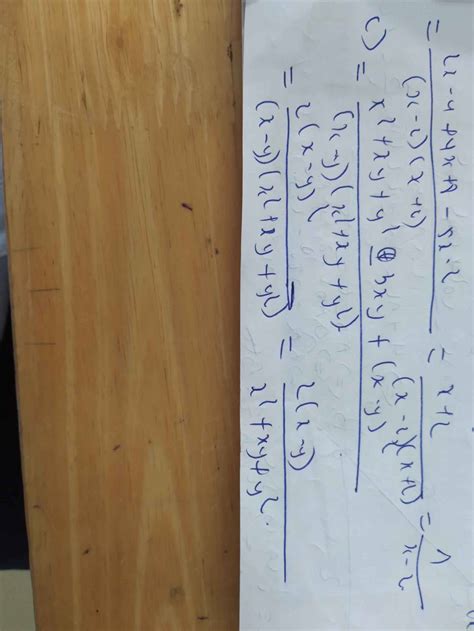 = (2x - 4 + 4x + 8 - 5x - 2) / ((x - 2)(x + 2)) = (x + 2) / ((x - 2)(x + 2)) = 1 / (x - 2)
c) = (x² + xy + y² - 3xy + (x - y)²) / ((x - y)(x² + xy + y²))
= 2(x - y)² / ((x - y)(x² + xy + y²)) = 2(x - y) / (x² + xy + y²).